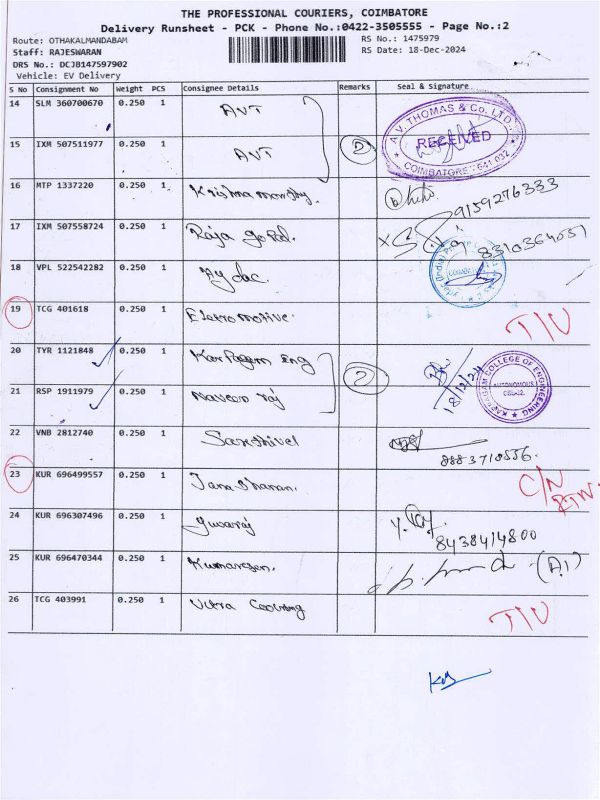 THE PROFESSIONAL COURIERS, COIMBATORE
Delivery Runsheet - PCK - Phone No.:0422-3505555 - Page No.:2
Route: OTHAKALMANDABAM
RS No.: 1475979
Staff: RAJESWARAN
RS Date: 18-Dec-2024
DRS No.: DCJB147597902
Vehicle: EV Delivery
S No Consignment No Weight PCS Consignee Details Remarks Seal & Signature
14 SLM 360700670 0.250 1 AVT
A.V. THOMAS & Co. LTD. RECEIVED COIMBATORE - 641 032
15 IXM 507511977 0.250 1 AVT 2
16 MTP 1337220 0.250 1 Krishna moorthy.
9159276333
17 IXM 507558724 0.250 1 Raja gopal.
8310364051
18 VPL 522542282 0.250 1
19 TCG 401618 0.250 1 Eletro motive. T/V
20 TYR 1121848 0.250 1 Karpagam Eng 2
18/12/24
KARPAGAM COLLEGE OF ENGINEERING AUTONOMOUS
21 RSP 1911979 0.250 1 Naveen raj
22 VNB 2812740 0.250 1 Sakthivel
8883710556.
23 KUR 696499557 0.250 1 C/N RTN.
24 KUR 696307496 0.250 1 Yuvaraj
8438414800
25 KUR 696470344 0.250 1 Kumaresan.
26 TCG 403991 0.250 1 T/V